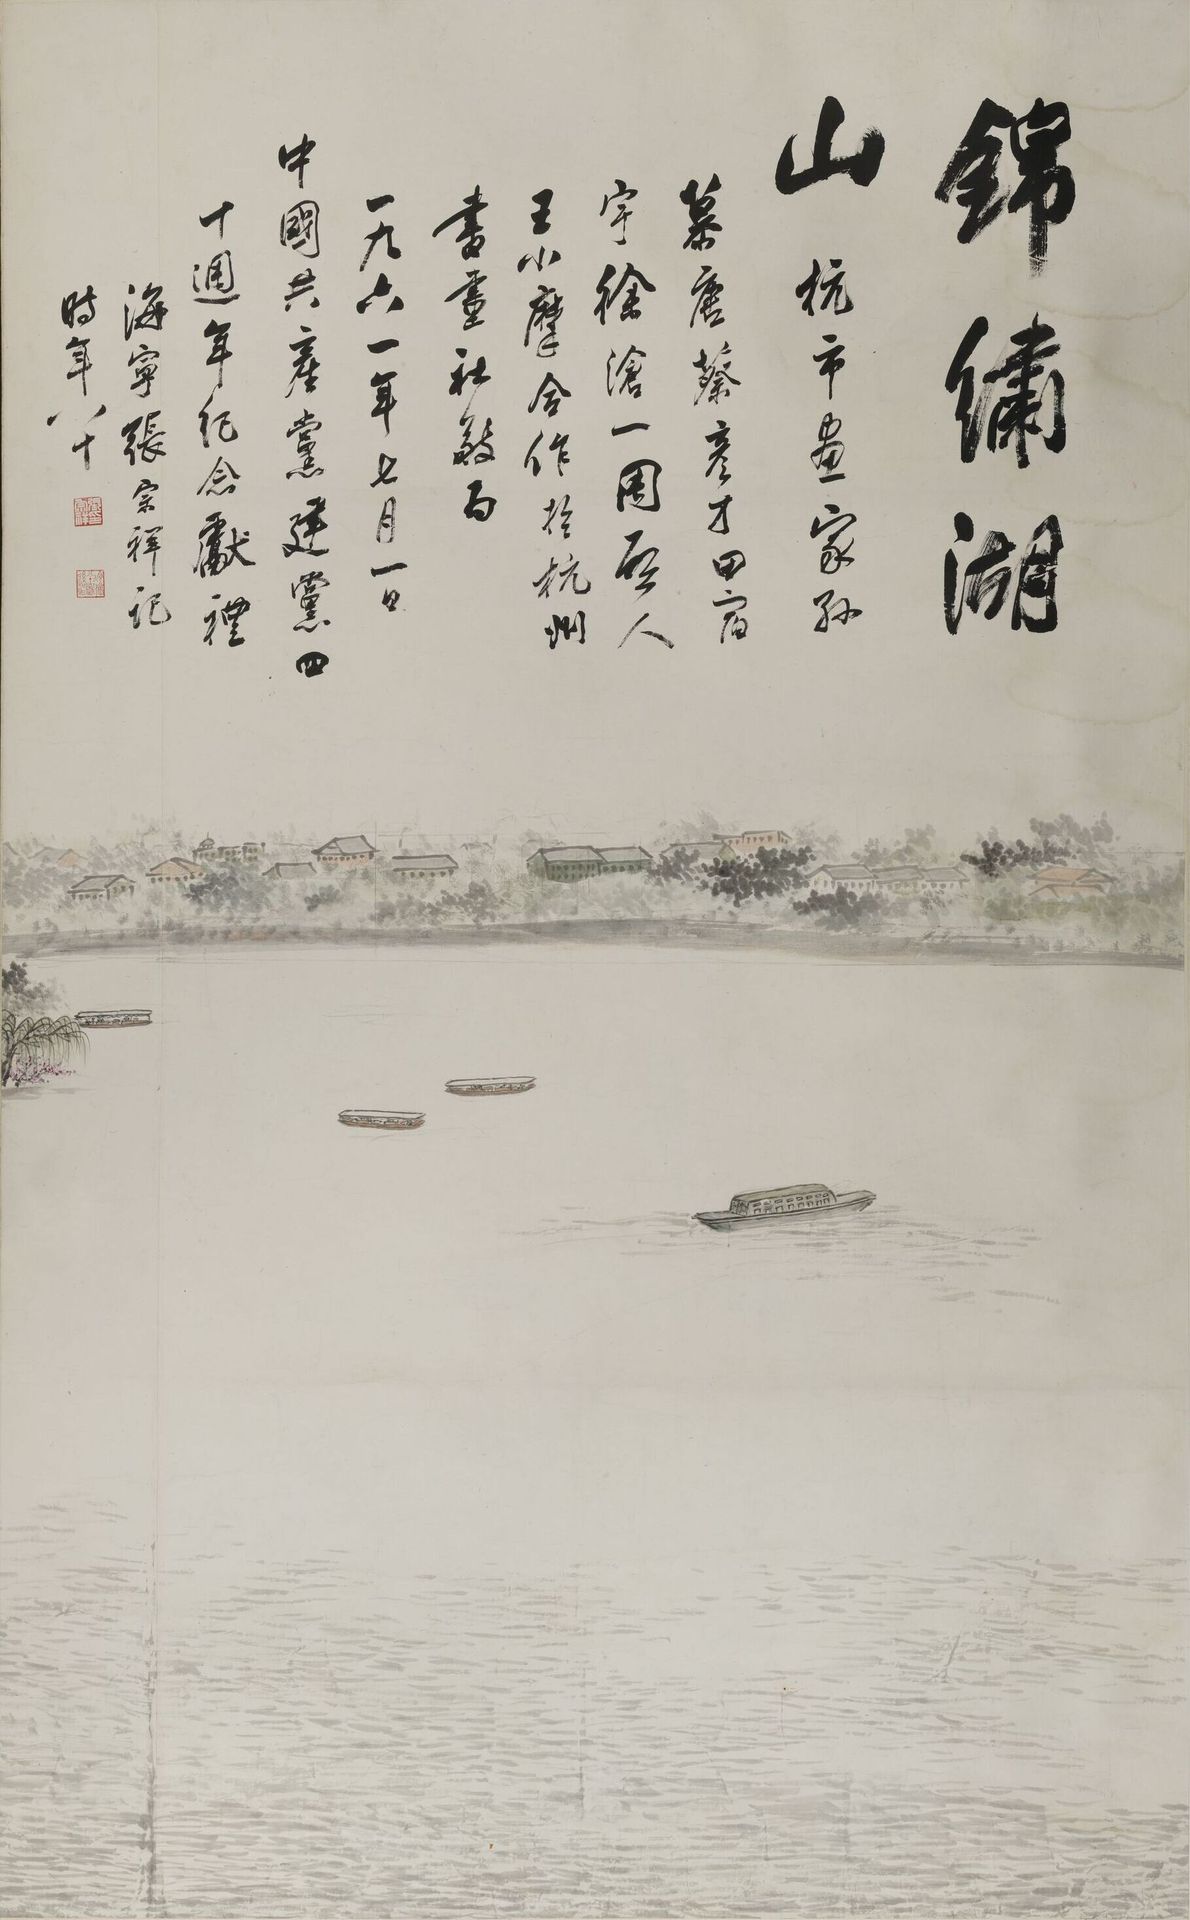 錦繡湖
山 杭市畫家孫
慕唐蔡彥才田宿
宇徐滄一周 人
王小摩合作於杭州
書畫社敬為
一九六一年七月一日
中國共產黨建黨四
十週年紀念獻禮
海寧張宗祥記
時年八十